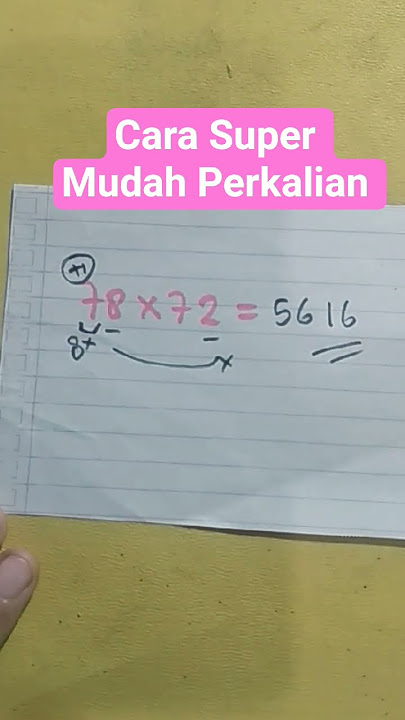 Cara Super
Mudah Perkalian
+1
78 x 72 = 5616
8 x